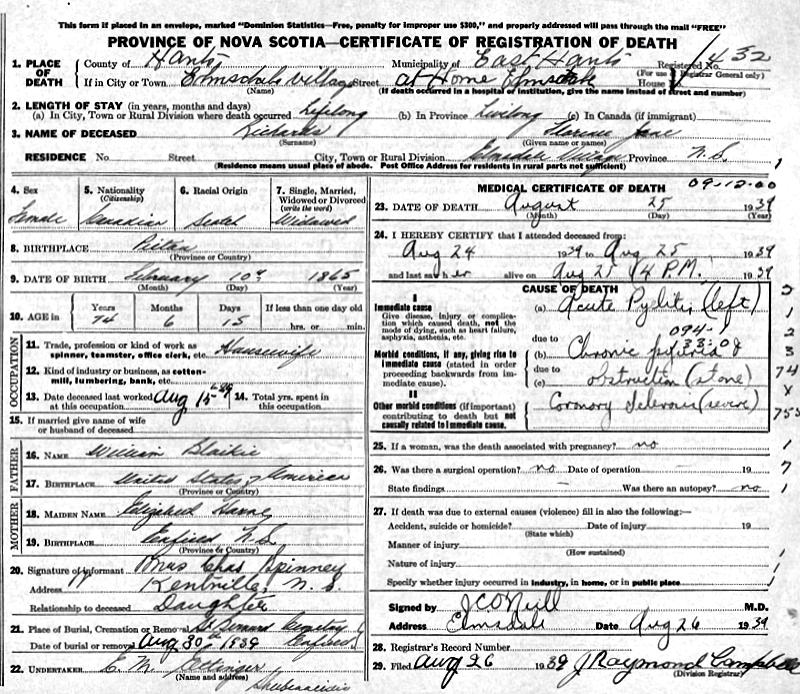 This form if placed in an envelope, marked "Dominion Statistics—Free, penalty for improper use $300," and properly addressed will pass through the mail "FREE"
PROVINCE OF NOVA SCOTIA—CERTIFICATE OF REGISTRATION OF DEATH
1. PLACE OF DEATH
County of Hants Municipality of East Hants Registered No. 1432
(For use of Registrar General only)
If in City or Town Elmsdale Village Street at Home Elmsdale House
(Name) (If death occurred in a hospital or institution, give the name instead of street and number)
2. LENGTH OF STAY (in years, months and days)
(a) In City, Town or Rural Division where death occurred Lifelong (b) In Province Lifelong (c) In Canada (if immigrant)
3. NAME OF DECEASED Richards Florence Jane
(Surname) (Given name or names)
RESIDENCE No. Street City, Town or Rural Division Province N.S.
(Residence means usual place of abode. Post Office Address for residents in rural parts not sufficient)
4. Sex Female
5. Nationality (Citizenship) Canadian
6. Racial Origin Scotch
7. Single, Married, Widowed or Divorced (write the word) Widowed
8. BIRTHPLACE Pictou
(Province or Country)
9. DATE OF BIRTH February 10th 1865
(Month) (Day) (Year)
10. AGE in Years 74 Months 6 Days 15 If less than one day old hrs. or min.
OCCUPATION
11. Trade, profession or kind of work as spinner, teamster, office clerk, etc. Housewife
12. Kind of industry or business, as cotton-mill, lumbering, bank, etc.
13. Date deceased last worked at this occupation Aug 15
14. Total yrs. spent in this occupation
15. If married give name of wife or husband of deceased
FATHER
16. Name William Blaikie
17. BIRTHPLACE United States of America
(Province or Country)
MOTHER
18. MAIDEN NAME
19. BIRTHPLACE Enfield N.S.
(Province or Country)
20. Signature of informant Mrs Chas Spinney
Address Kentville, N.S.
Relationship to deceased Daughter
21. Place of Burial, Cremation or Removal Cemetery Enfield
Date of burial or removal Aug 30th 1939
22. UNDERTAKER E. M.
(Name and address)
Shubenacadie
MEDICAL CERTIFICATE OF DEATH 09-12-00
23. DATE OF DEATH August 25 1939
(Month) (Day) (Year)
24. I HEREBY CERTIFY that I attended deceased from:
Aug 24 1939 to Aug 25 1939
and last saw her alive on Aug 25 (4 P.M.) 1939
CAUSE OF DEATH
I
Immediate cause
Give disease, injury or complication which caused death, not the mode of dying, such as heart failure, asphyxia, asthenia, etc.
(a) Acute Pyelitis (left)
due to 094-1
Morbid conditions, if any, giving rise to immediate cause (stated in order proceeding backwards from immediate cause).
(b) Chronic
33-08
due to
(c) obstruction (stone)
II
Other morbid conditions (if important) contributing to death but not causally related to immediate cause.
Coronary sclerosis (severe)
25. If a woman, was the death associated with pregnancy? no
26. Was there a surgical operation? no Date of operation — 19
State findings Was there an autopsy? no
27. If death was due to external causes (violence) fill in also the following:—
Accident, suicide or homicide? Date of injury 19
(State which)
Manner of injury
(How sustained)
Nature of injury
Specify whether injury occurred in industry, in home, or in public place
Signed by J C O'Neill M.D.
Address Elmsdale Date Aug 26 1939
28. Registrar's Record Number
29. Filed Aug 26 1939 J Raymond Campbell
(Division Registrar)